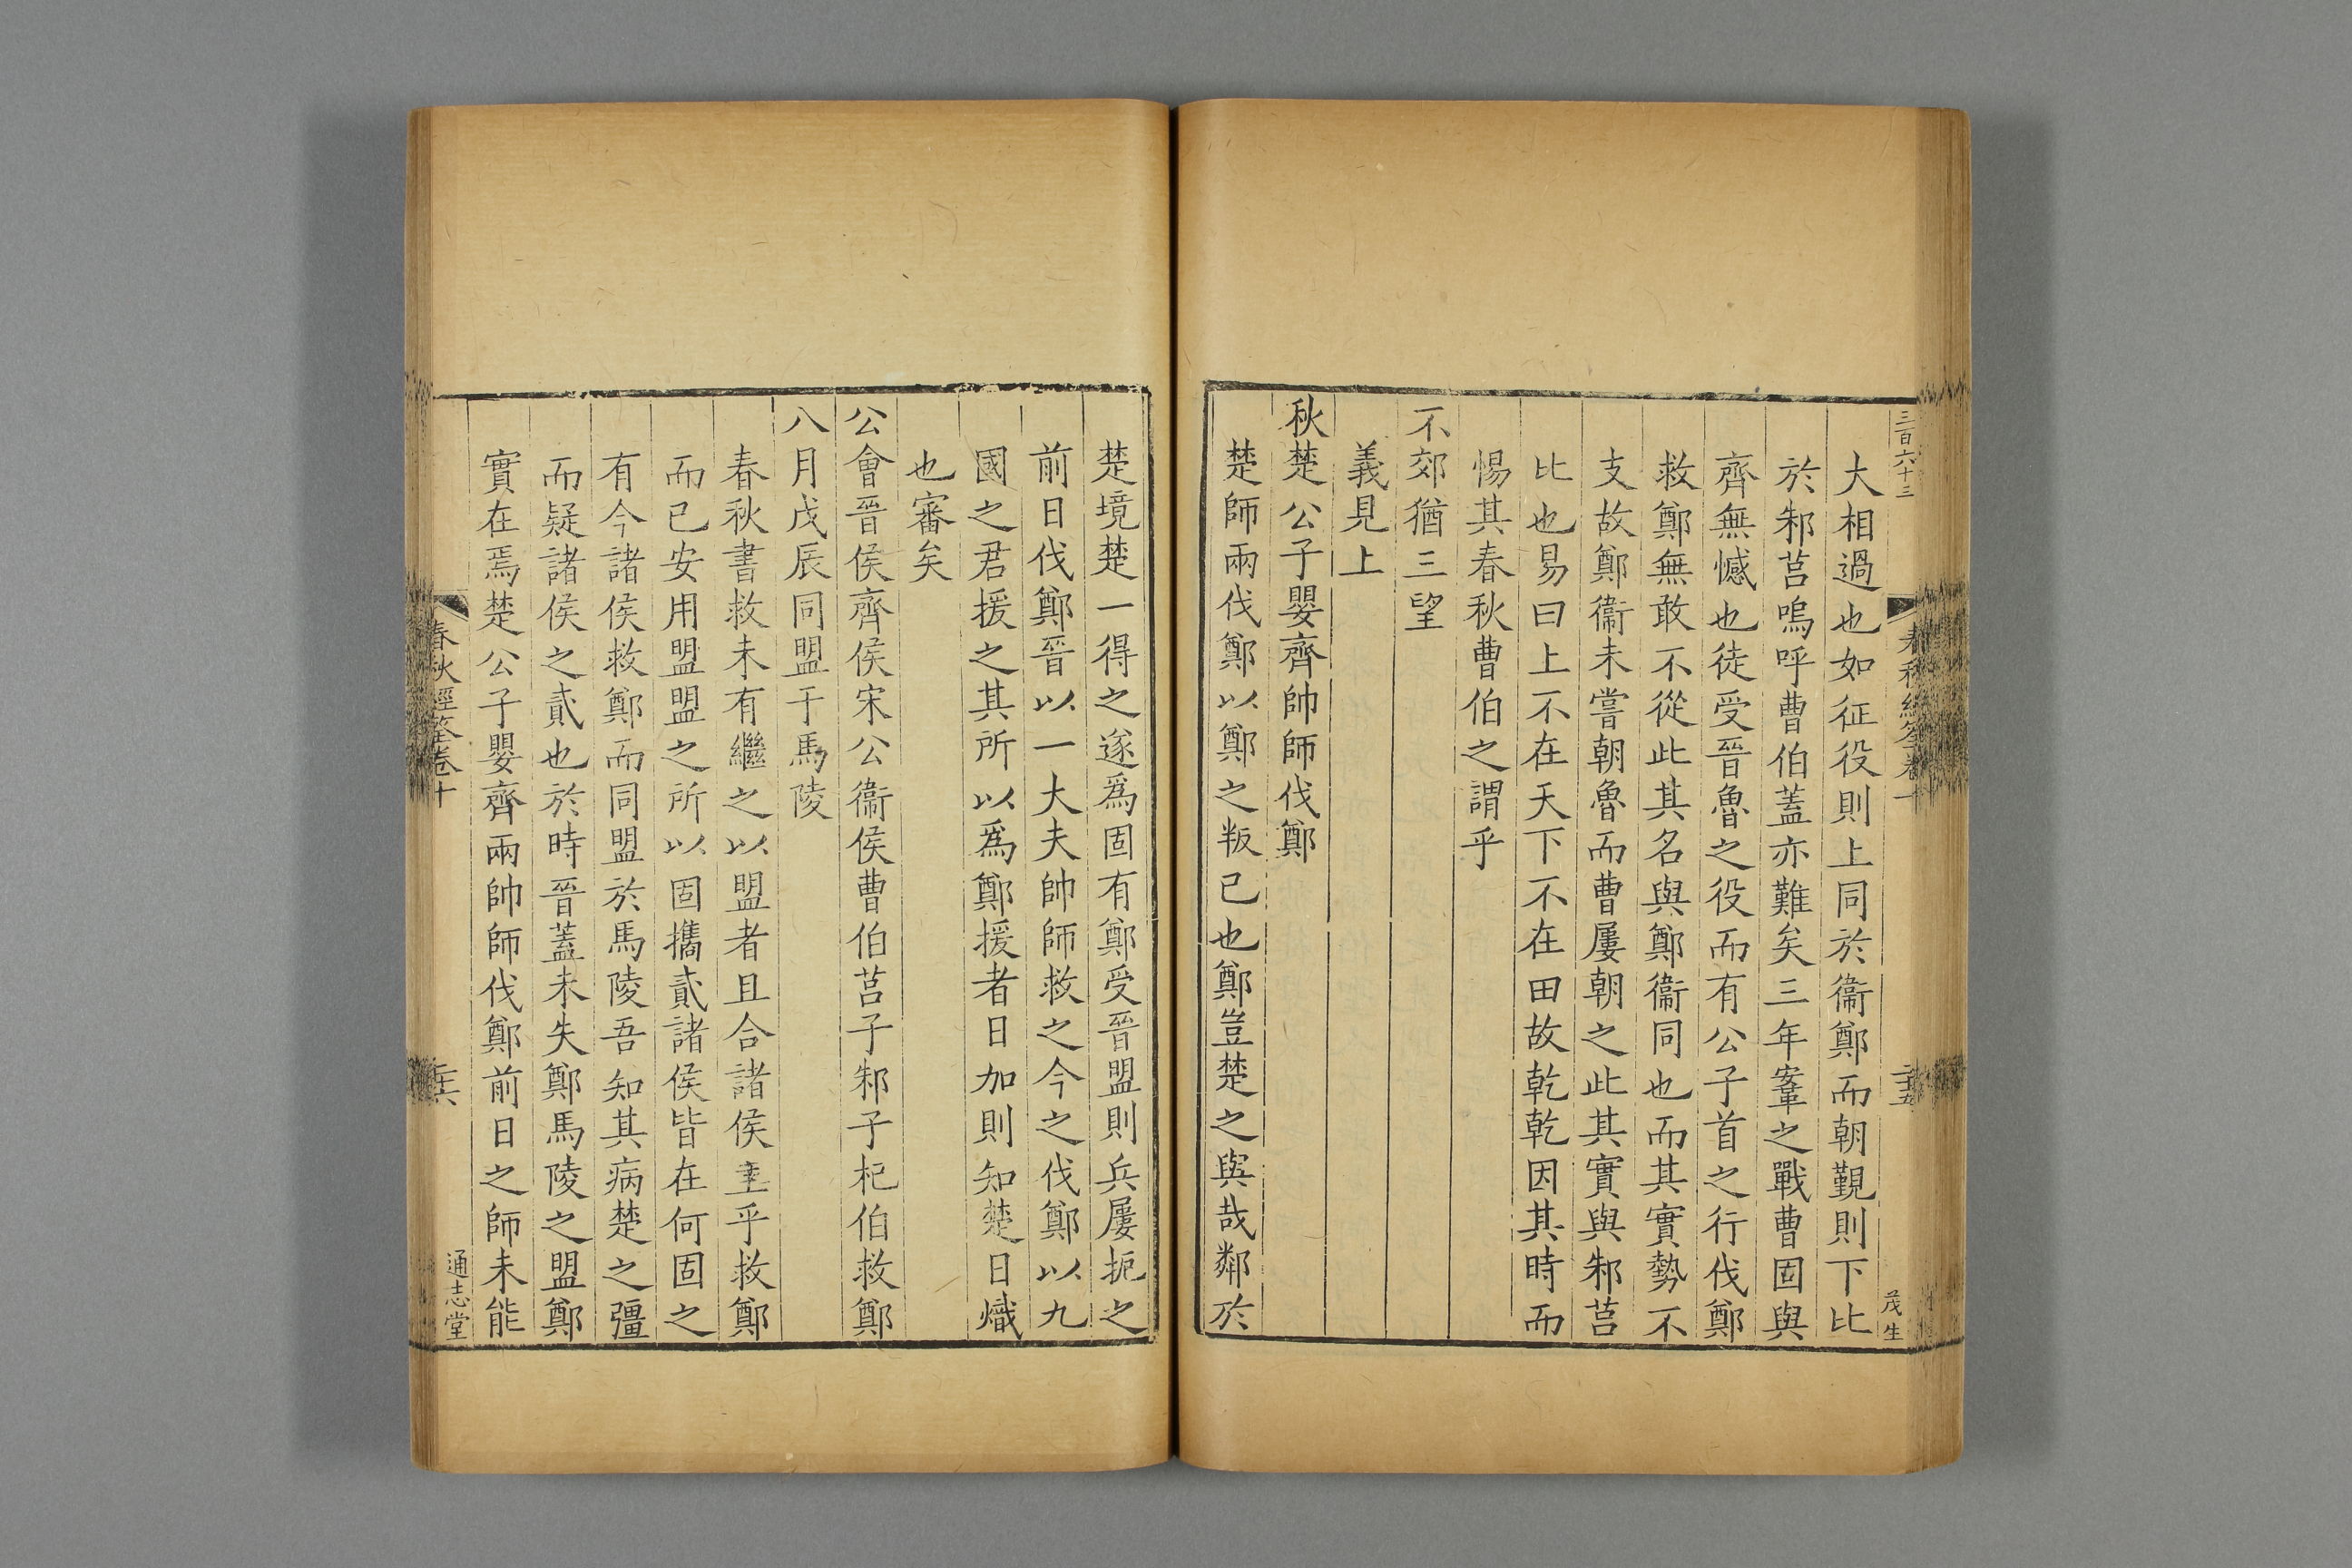 三百六十三
春秋經筌卷十
二十五
茂生
大相過也如征役則上同於衞鄭而朝覲則下比
於邾莒嗚呼曹伯蓋亦難矣三年鞌之戰曹固與
齊無憾也徒受晉魯之役而有公子首之行伐鄭
救鄭無敢不從此其名與鄭衞同也而其實勢不
支故鄭衞未嘗朝魯而曹屢朝之此其實與邾莒
比也易曰上不在天下不在田故乾乾因其時而
惕其春秋曹伯之謂乎
不郊猶三望
義見上
秋楚公子嬰齊帥師伐鄭
楚師兩伐鄭以鄭之叛己也鄭豈楚之與哉鄰於
楚境楚一得之遂爲固有鄭受晉盟則兵屢扼之
前日伐鄭晉以一大夫帥師救之今之伐鄭以九
國之君援之其所以爲鄭援者日加則知楚日熾
也審矣
公會晉侯齊侯宋公衞侯曹伯莒子邾子杞伯救鄭
八月戊辰同盟于馬陵
春秋書救未有繼之以盟者且合諸侯重乎救鄭
而已安用盟盟之所以固攜貳諸侯皆在何固之
有今諸侯救鄭而同盟於馬陵吾知其病楚之彊
而疑諸侯之貳也於時晉蓋未失鄭馬陵之盟鄭
實在焉楚公子嬰齊兩帥師伐鄭前日之師未能
春秋經筌卷十
二十六
通志堂